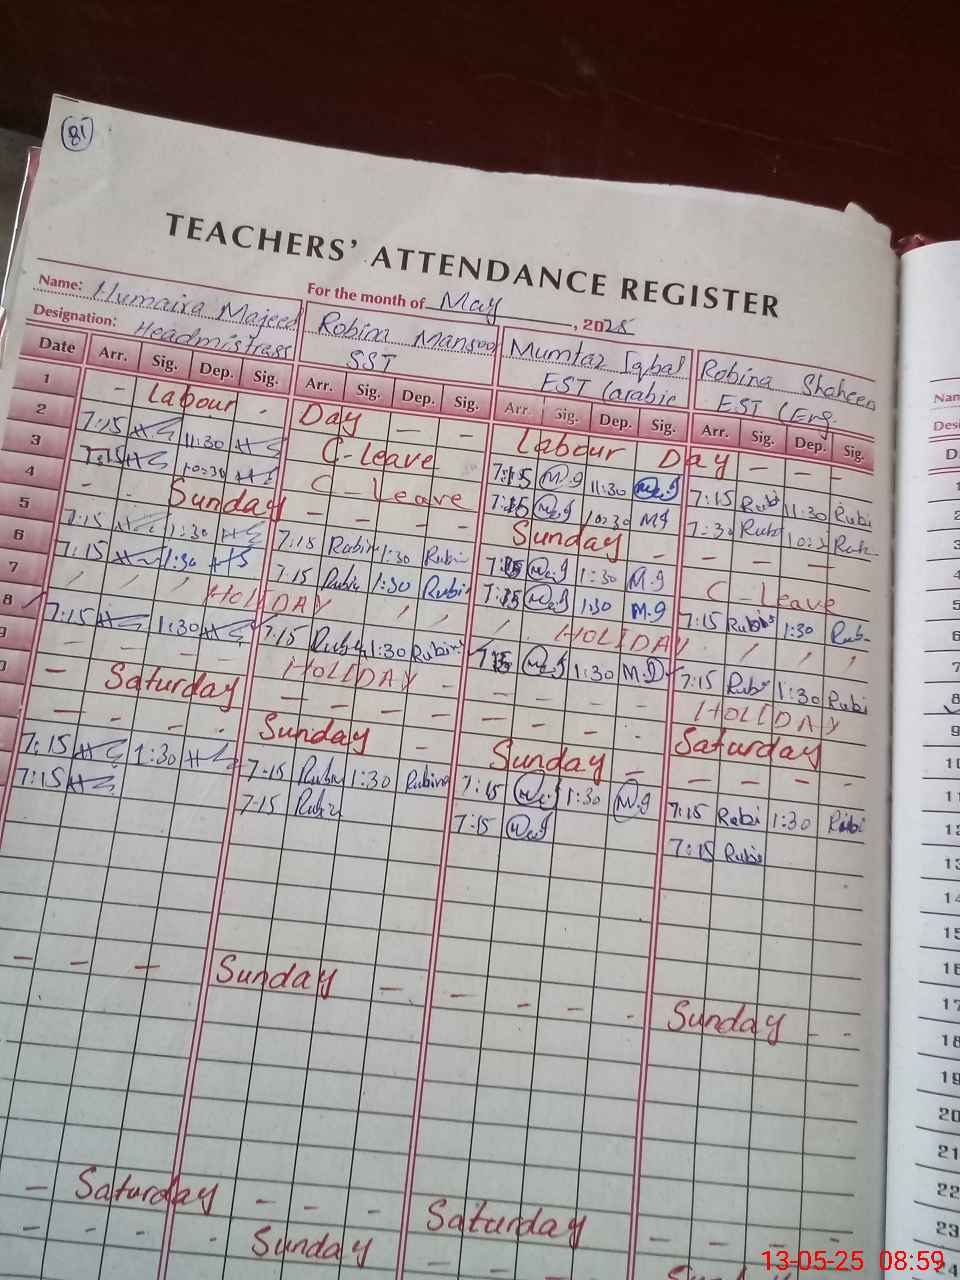 81
TEACHERS' ATTENDANCE REGISTER
For the month of May, 2025
Name: Humaira Majeed Robina Mansoo Mumtaz Iqbal Robina Shaheen
Designation: Headmistrass SST EST (arabic EST (Eng.
Date Arr. Sig. Dep. Sig. Arr. Sig. Dep. Sig. Arr. Sig. Dep. Sig. Arr. Sig. Dep. Sig.
1 - Labour - Day - - Labour Day - -
2 7:15 11:30 C-leave 7:15 M.g 11:30 7:15 Rubi 11:30 Rubi
3 7:15 10:30 C-Leave 7:15 10:30 Mg 7:30 Rub
4 - - Sunday - - - - Sunday - - - -
5 7:15 1:30 7:15 Rubin 1:30 Rubi 7:15 1:30 M.g C-Leave
6 7:15 1:30 7:15 Rubi 1:30 Rubi 7:15 1:30 M.g 7:15 Rubi 1:30 Rub
7 HOLIDAY HOLIDAY
8 7:15 1:30 7:15 Rubi 1:30 Rubin 7:15 1:30 M.g 7:15 Rubi 1:30 Rubi
9 - - - - HOLIDAY - - HOLIDAY
0 - Saturday - - - - - - - - Saturday
- - - - Sunday - Sunday - - - - -
7:15 1:30 7-15 Rubi 1:30 Rubina 7:15 1:30 M.g 7:15 Rubi 1:30 Rubi
7:15 7-15 Rubi 7:15 7:15 Rubi
- - - Sunday - - - - - Sunday - -
- Saturday - - - Saturday - - - -
- - - - Sunday - - - -
Nam
Desi
D
1
2
3
4
5
6
7
8
9
10
11
12
13
14
15
16
17
18
19
20
21
22
23
24
13-05-25 08:59